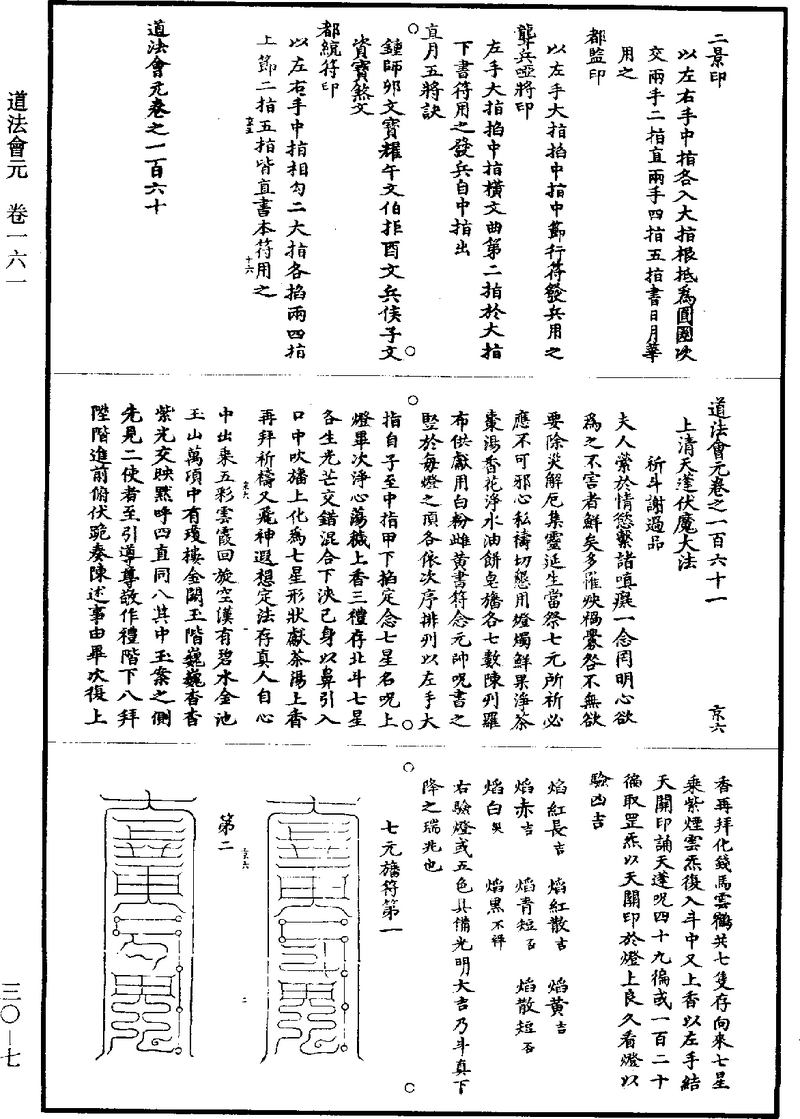 道法會元　卷一六一
三〇—七
二景印
以左右手中指各入大指根抵為圓圈次
交兩手二指直兩手四指五指書日月華
用之
都監印
以左手大指掐中指中節行符發兵用之
聾兵啞將印
左手大指掐中指橫文曲第二指於大指
下書符用之發兵自中指出
直月五將訣
鍾師卯文寶耀午文伯拒酉文兵侯子文
資寶煞文
都統符印
以左右手中指相勾二大指各掐兩四指
上節二指五指皆直書本符用之
十六
道法會元卷之一百六十
道法會元卷之一百六十一
京六
上清天蓬伏魔大法
祈斗謝過品
夫人縈於情慾繫諸嗔癡一念罔明心欲
為之不害者鮮矣多罹殃禍釁咎不無欲
要除災解厄集靈延生當祭七元所祈必
應不可邪心私禱切懇用燈燭鮮果淨茶
棗湯香花淨水油餅皂旛各七數陳列羅
布供獻用白粉雌黃書符念元帥呪書之
竪於每燈之頂各依次序排列以左手大
指自子至中指甲下掐定念七星名呪上
燈畢次淨心蕩穢上香三禮存北斗七星
各生光芒交錯混合下泱己身以鼻引入
口中吹旛上化為七星形狀獻茶湯上香
再拜祈禱又飛神遐想定法存真人自心
京六
一
中出乘五彩雲霞回旋空漢有碧水金池
玉山萬頃中有瓊樓金闕玉階巍巍杳杳
紫光交映默呼四直同入其中玉案之側
先見二使者至引導尊敬作禮階下八拜
陛階進前俯伏跪奏陳述事由畢次復上
香再拜化錢馬雲鶴共七隻存向來七星
乘紫煙雲炁復入斗中又上香以左手結
天關印誦天蓬呪四十九徧或一百二十
徧取罡炁以天關印於燈上良久看燈以
驗凶吉
焰紅長吉　焰紅散吉　焰黃吉
焰赤吉　焰青短否　焰散短否
焰白哭　焰黑不祥
右驗燈或五色具備光明大吉乃斗真下
降之瑞兆也
七元旛符第一
京六
二
第二